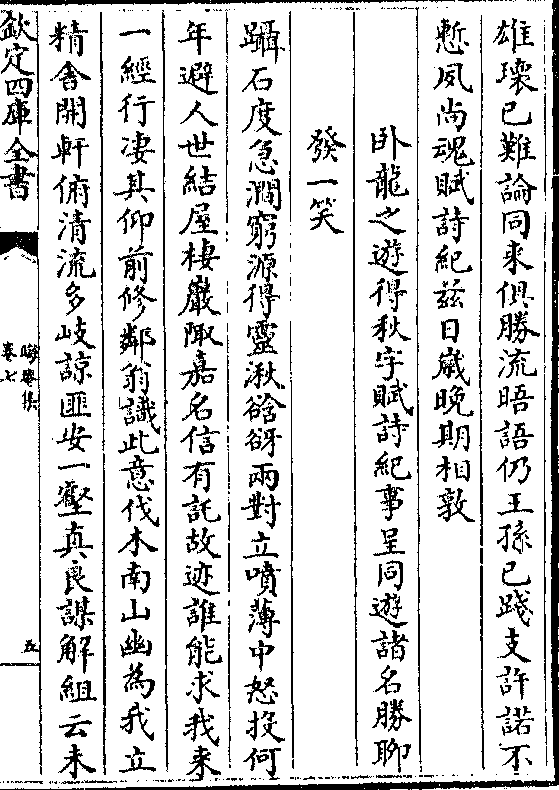 雄瓌已難論同來俱勝流晤語仍王孫已踐支許諾不
慙夙尚魂賦詩紀兹日嵗晚期相敦
卧龍之遊得秋字賦詩紀事呈同遊諸名勝聊
發一笑
躡石度急澗窮源得靈湫谽谺兩對立噴薄中怒投何
年避人世結屋棲巖陬嘉名信有託故迹誰能求我来
一經行凄其仰前修鄰翁識此意伐木南山幽為我立
精舍開軒俯清流多岐諒匪安一壑真良謀解組云未
欽定四庫全書
晦庵集
卷七
五